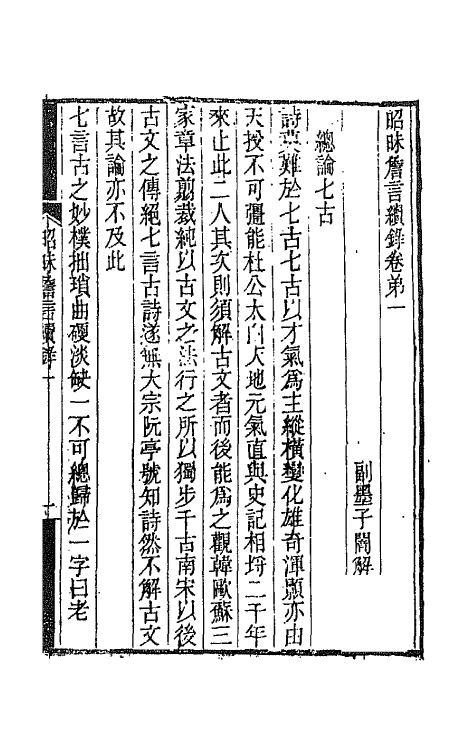 昭昧詹言續錄卷弟一
副墨子闇解
總論七古
詩莫難於七古七古以才氣爲主縱橫變化雄奇渾顥亦由
天授不可彊能杜公太白天地元氣直與史記相埒二千年
來止此二人其次則須解古文者而後能爲之觀韓歐蘇三
家章法翦裁純以古文之法行之所以獨步千古南宋以後
古文之傳絕七言古詩遂無大宗阮亭號知詩然不解古文
故其論亦不及此
七言古之妙樸拙瑣曲硬淡缺一不可總歸於一字曰老
昭昧詹言續錄一